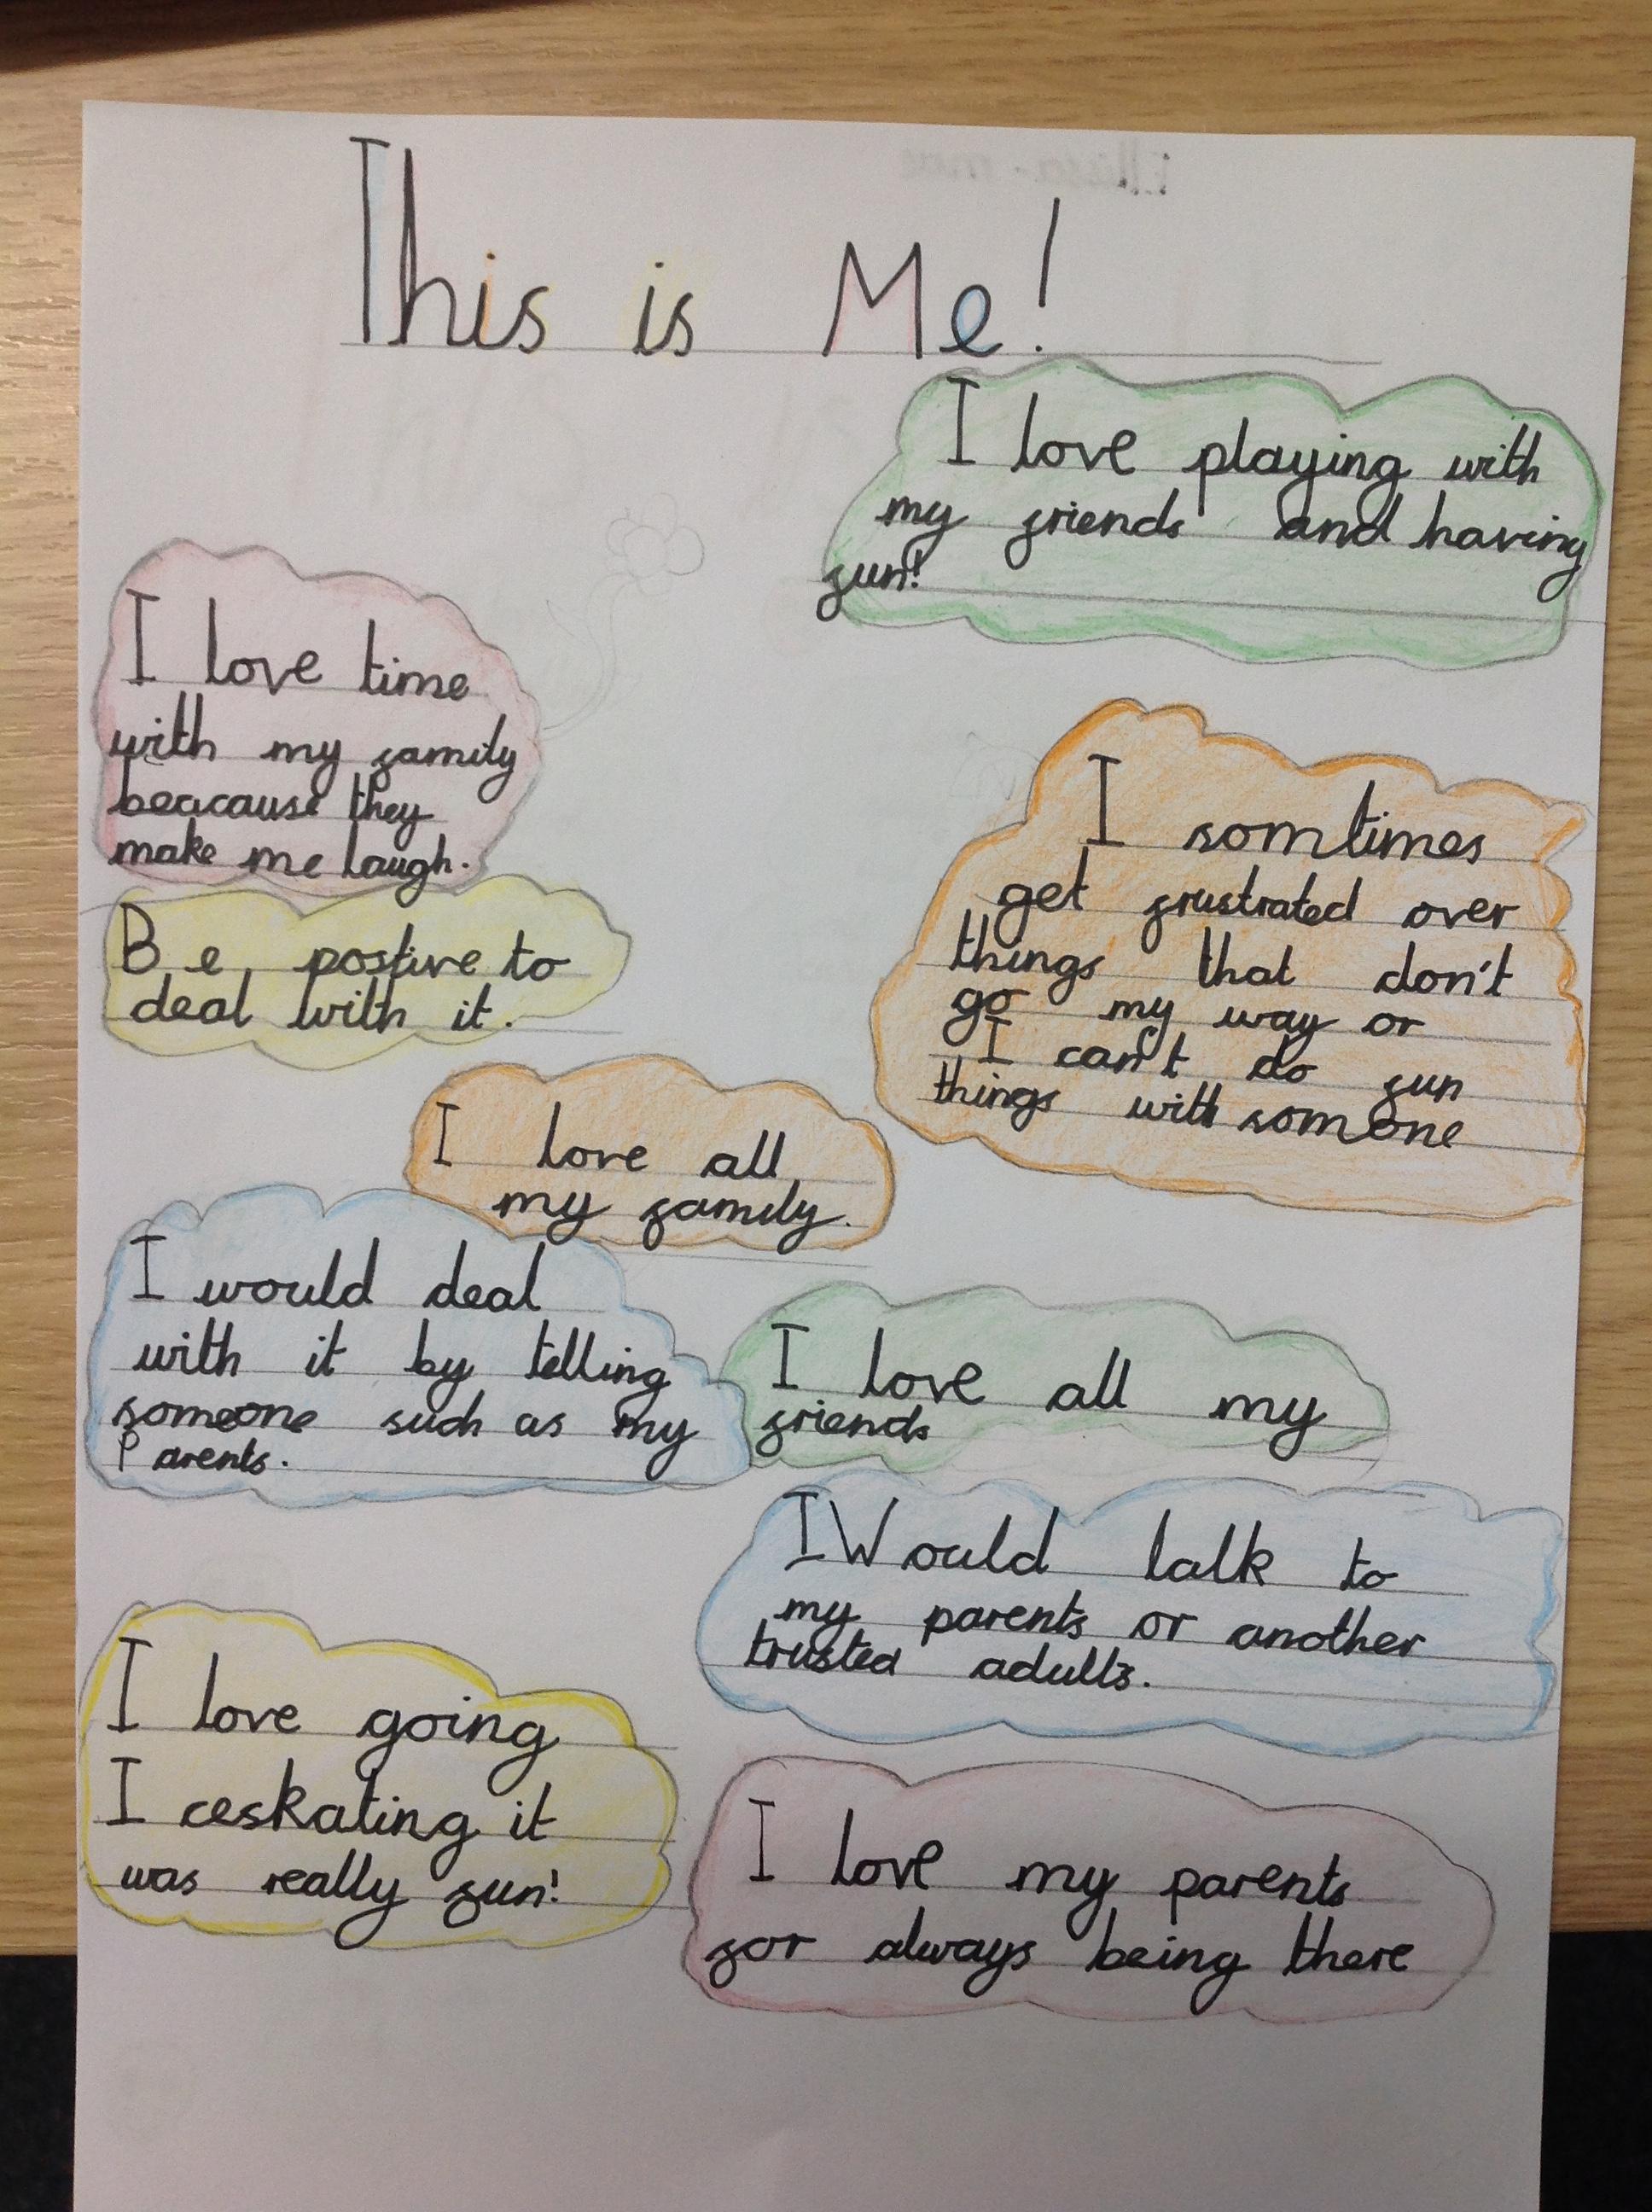 This is Me!
I love playing with
my friends and having
fun!
I love time
with my family
beacause they
make me laugh.
I somtimes
get frustrated over
things that don't
go my way or
I can't do fun
things with someone
Be postive to
deal with it.
I love all
my family.
I would deal
with it by telling
someone such as my
Parents.
I love all my
friends
I Would talk to
my parents or another
trusted adults.
I love going
Iceskating it
was really fun!
I love my parents
for always being there